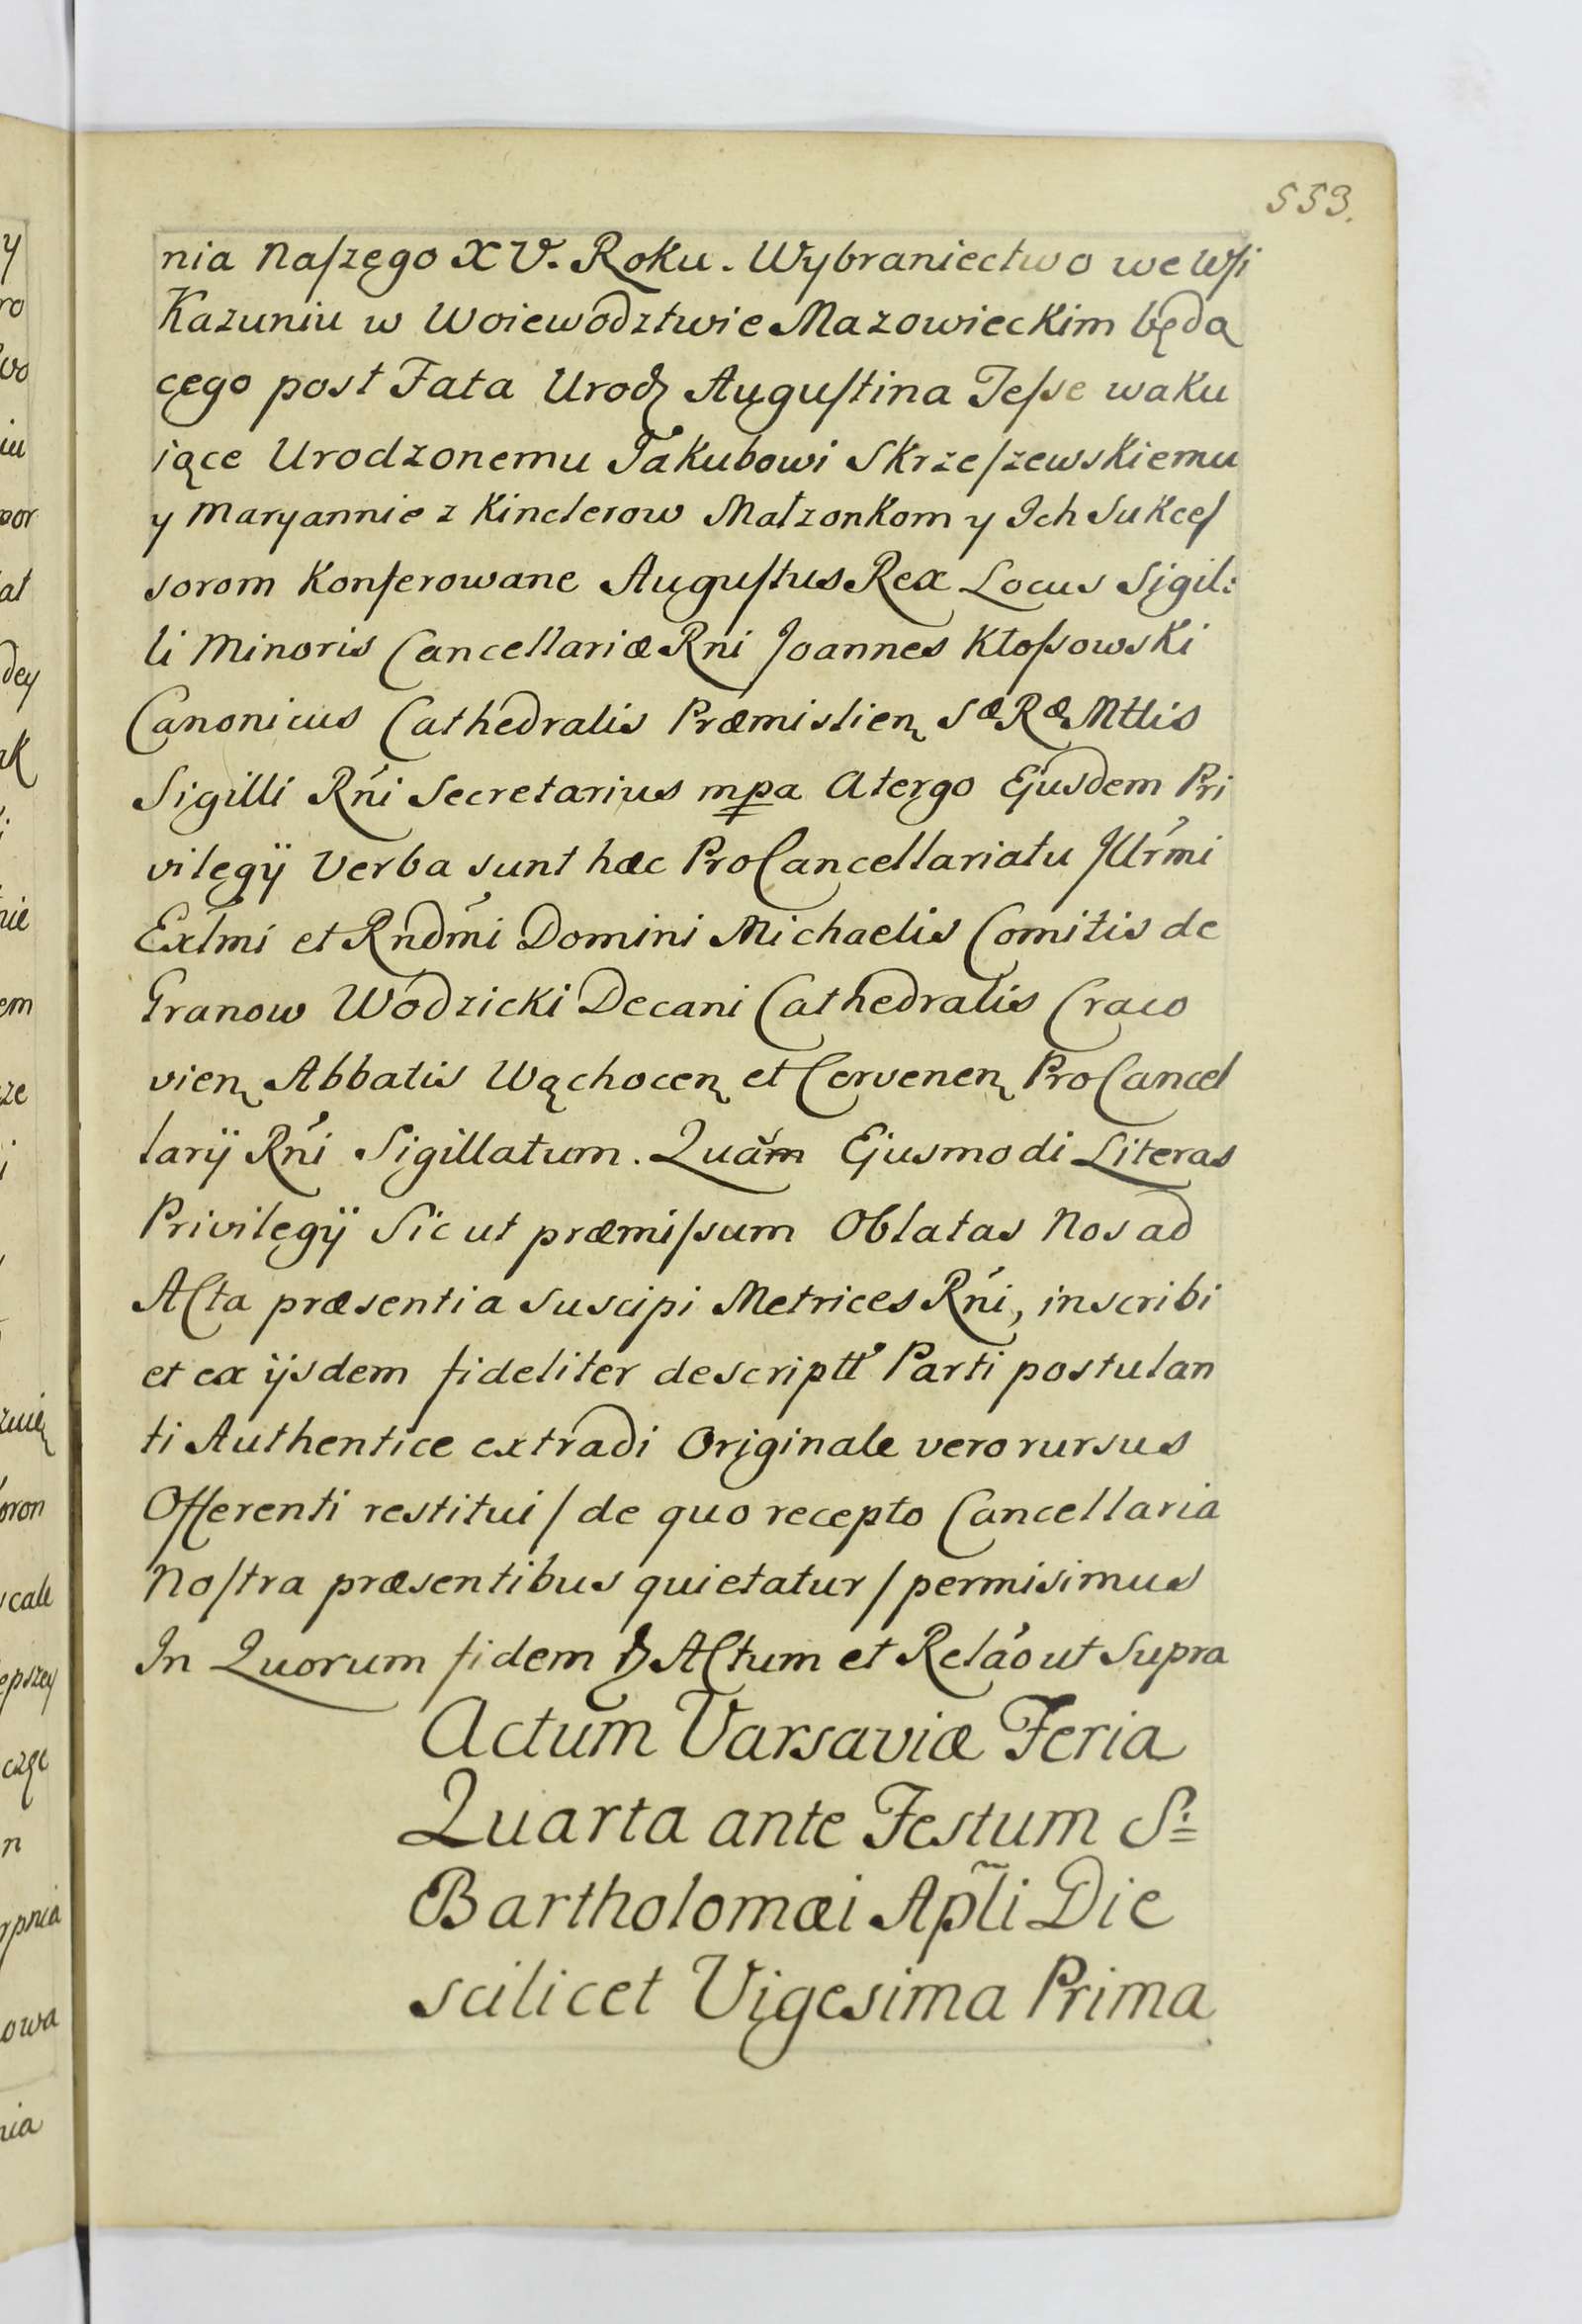 553.
nia Naſzęgo XV. Roku. Wybraniectwo we Wſi
Kazuniu w Woiewodztwie Mazowieckim będą
cęgo post Fata Urodz Auguſtina Jeſse waku
iące Urodzonemu Jakubowi Skrzeſzewskiemu
y Maryannie z Kinclerow Małzonkom y Ich Sukceſ
sorom Konferowane Auguſtus Rex Locus Sigil:
li Minoris Cancellariæ Rni Joannes Kłoſsowski
Canonicus Cathedralis Præmislien SæRæMttis
Sigilli Rni Secretarius mpa Atergo Ejusdem Pri
vilegij Verba sunt hæc ProCancellariatu Jllrmi
Exlmi et Rndmi Domini Michaelis Comitis de
Granow Wodzicki Decani Cathedralis Craco
vien Abbatis Wąchocen et Cervenen ProCancel
larij Rni Sigillatum. Quam Ejusmodi Literas
Privilegij Sic ut præmiſsum Oblatas Nos ad
Acta præsentia suscipi Metrices Rni, inscribi
et ex ijsdem fideliter descriptt Parti postulan
ti Authentice extradi Originale vero rursus
Offerenti restitui / de quo recepto Cancellaria
Noſtra præsentibus quietatur / permisimus
In Quorum fidem Actum et Relao ut Supra
Actum Varsaviæ Feria
Quarta ante Festum S:
Bartholomæi Apli Die
scilicet Vigesima Prima